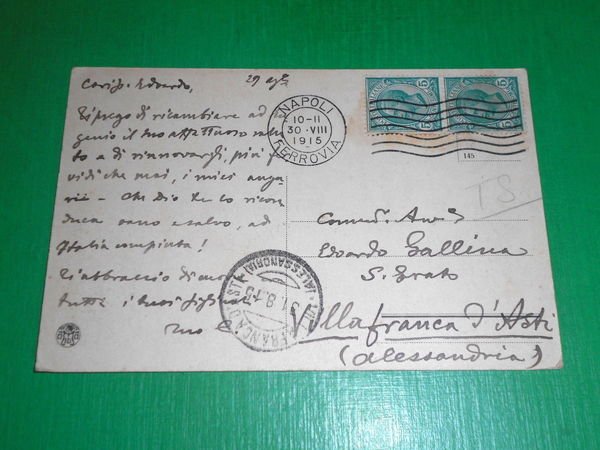 Cariss. Edoardo,
29 ag.
Ti prego di ricambiare ad
genio il suo affettuoso salu
to e di rinnovargli, più f
vidi che mai, i miei augu
rii - Che Dio te lo ricon
duca sano e salvo, ad
Italia compiuta!
Ti abbraccio di cuore
tutti i tuoi figli
tuo
NAPOLI
10-11
30·VIII
1915
FERROVIA
145
TS
Comm. Avv.
Edoardo Gallina
S. Grato
Villafranca d'Asti
(Alessandria)
VILLAFRANCA D'ASTI
(ALESSANDRIA)
31.8.15